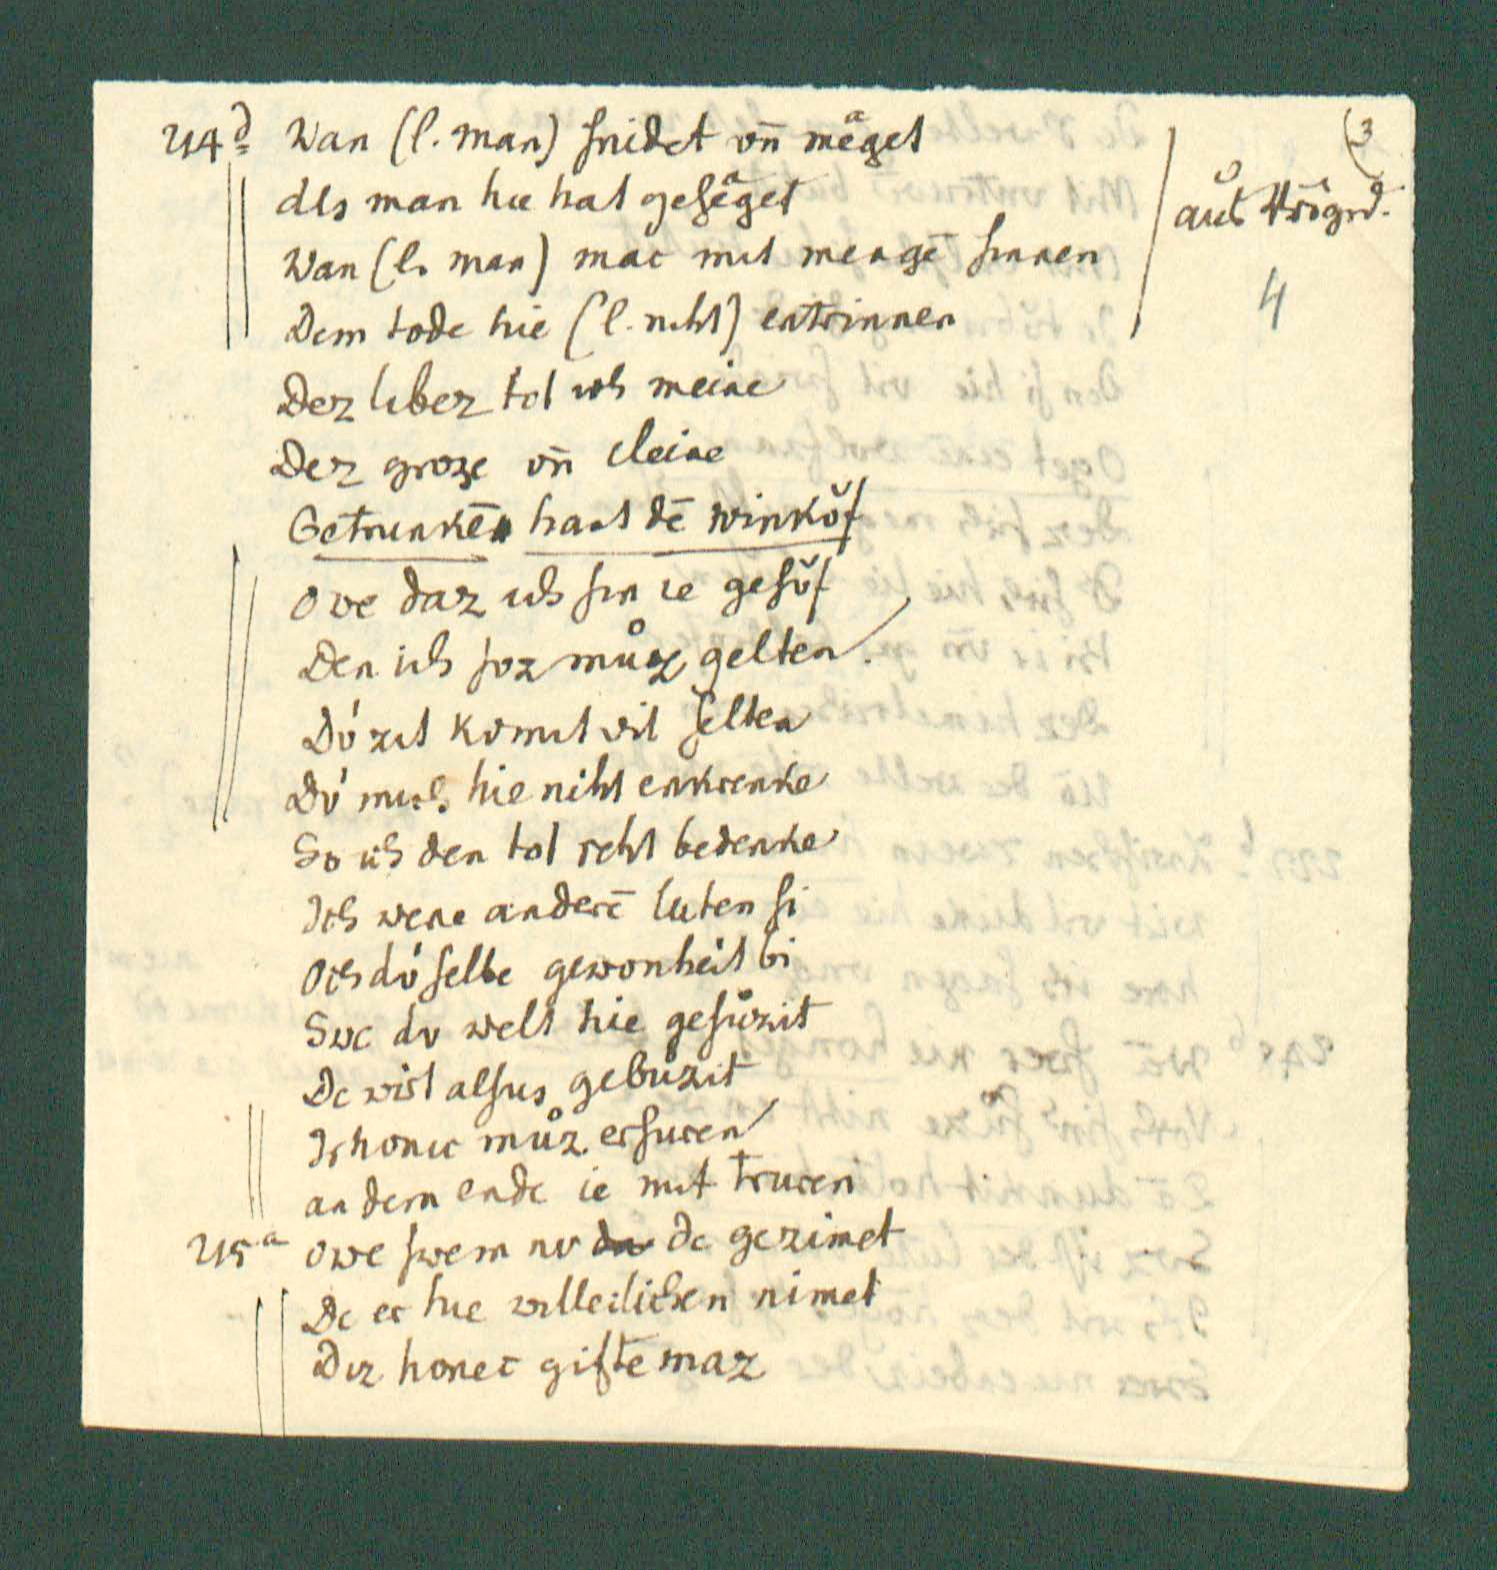 (3
214d Wan (l. man) snidet vn̄ mëget
Als man hie hat gesëget
aus
Wan (l. man) mac mit mengē sinnen
4
Dem tode hie (l. niht) entrinnen
Der liber tot ich meine
Der groze vn̄ cleine
Getrunkē hat dē winkǒf
Owe daz ich sin ie gesǒf
Den ich sor můz gelten
Dv́ zit kvmit vil selten
Dv́ mich hie niht enkrenke
So ich den tot reht bedenke
Ich wene anderē luten si
Och dv́ selbe gewonheit bi
Swc dv welt hie gesůzit
Dc wirt alsus gebůzit
Ir honic můz ersuren
an dem ende ie mit truren
215a owe swem nv dc gezimet
Dc er hie willeclichen nimet
Diz honec gifte maz